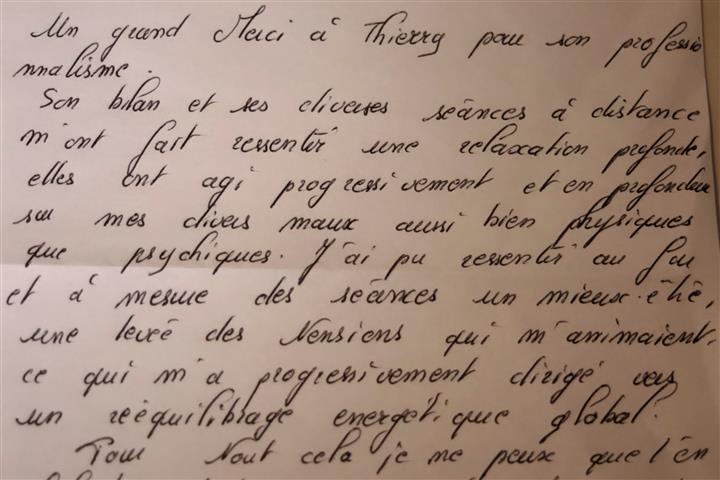 Un grand Merci à Thierry pour son professio
nnalisme.
Son bilan et ses diverses séances à distance
m'ont fait ressentir une relaxation profonde,
elles ont agi progressivement et en profondeur
sur mes divers maux aussi bien physiques
que psychiques. J'ai pu ressentir au fur
et à mesure des séances un mieux-être,
une levée des Tensions qui m'animaient,
ce qui m'a progressivement dirigé vers
un rééquilibrage energétique global.
Pour Tout cela je ne peux que l'en